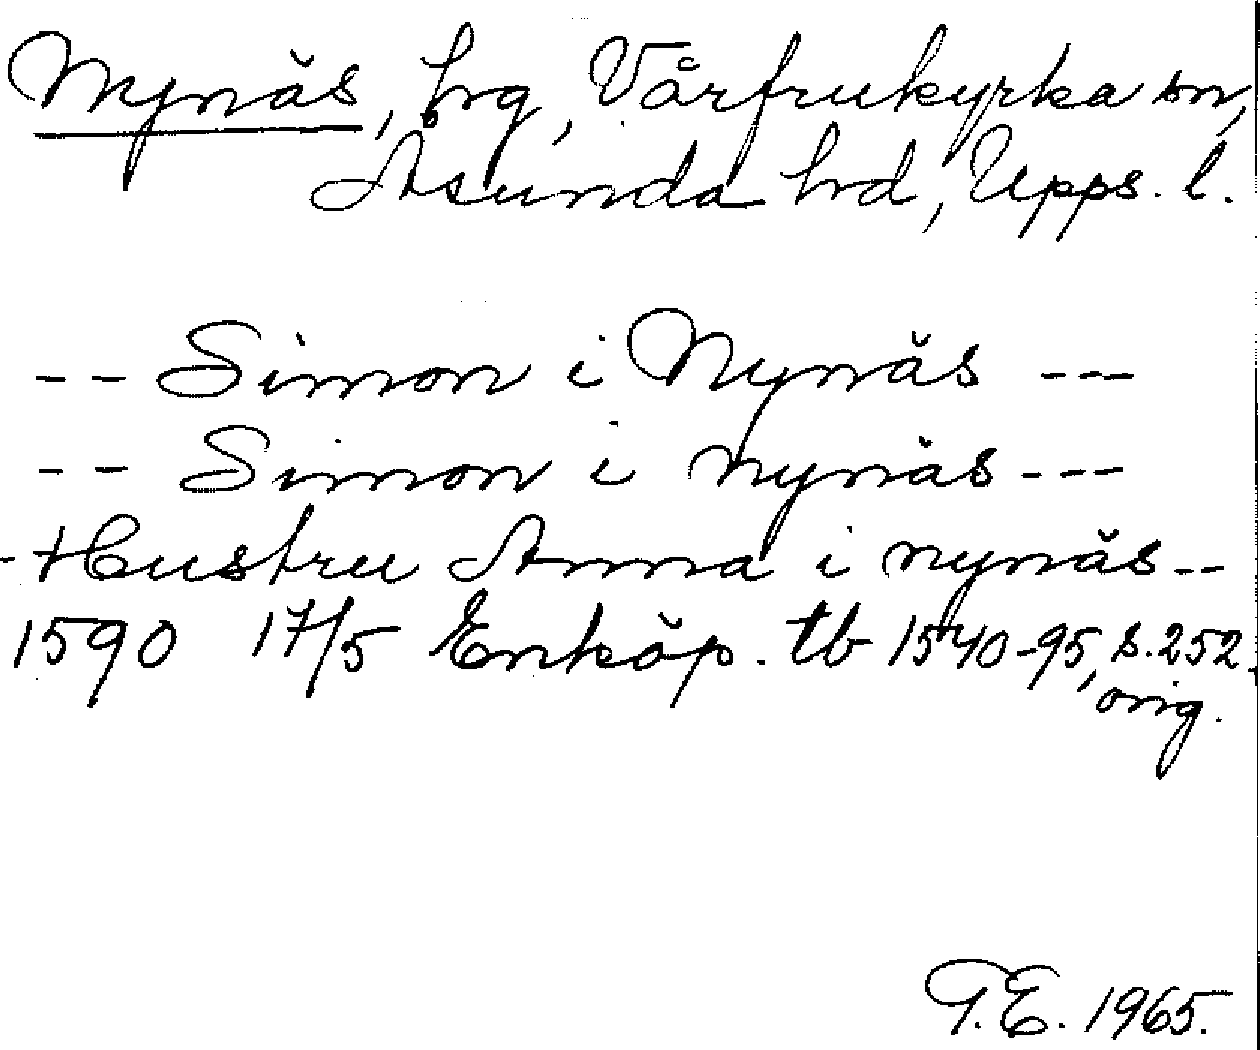 Nynäs, hrg, Vårfrukyrka sn,
Åsunda hrd, Upps. l.
-- Simon i Nynäs ---
-- Simon i nynäs ---
- Hustru Anna i nynäs --
1590 17/5 Enköp. tb 1540-95, s. 252.
orig.
T.E. 1965.